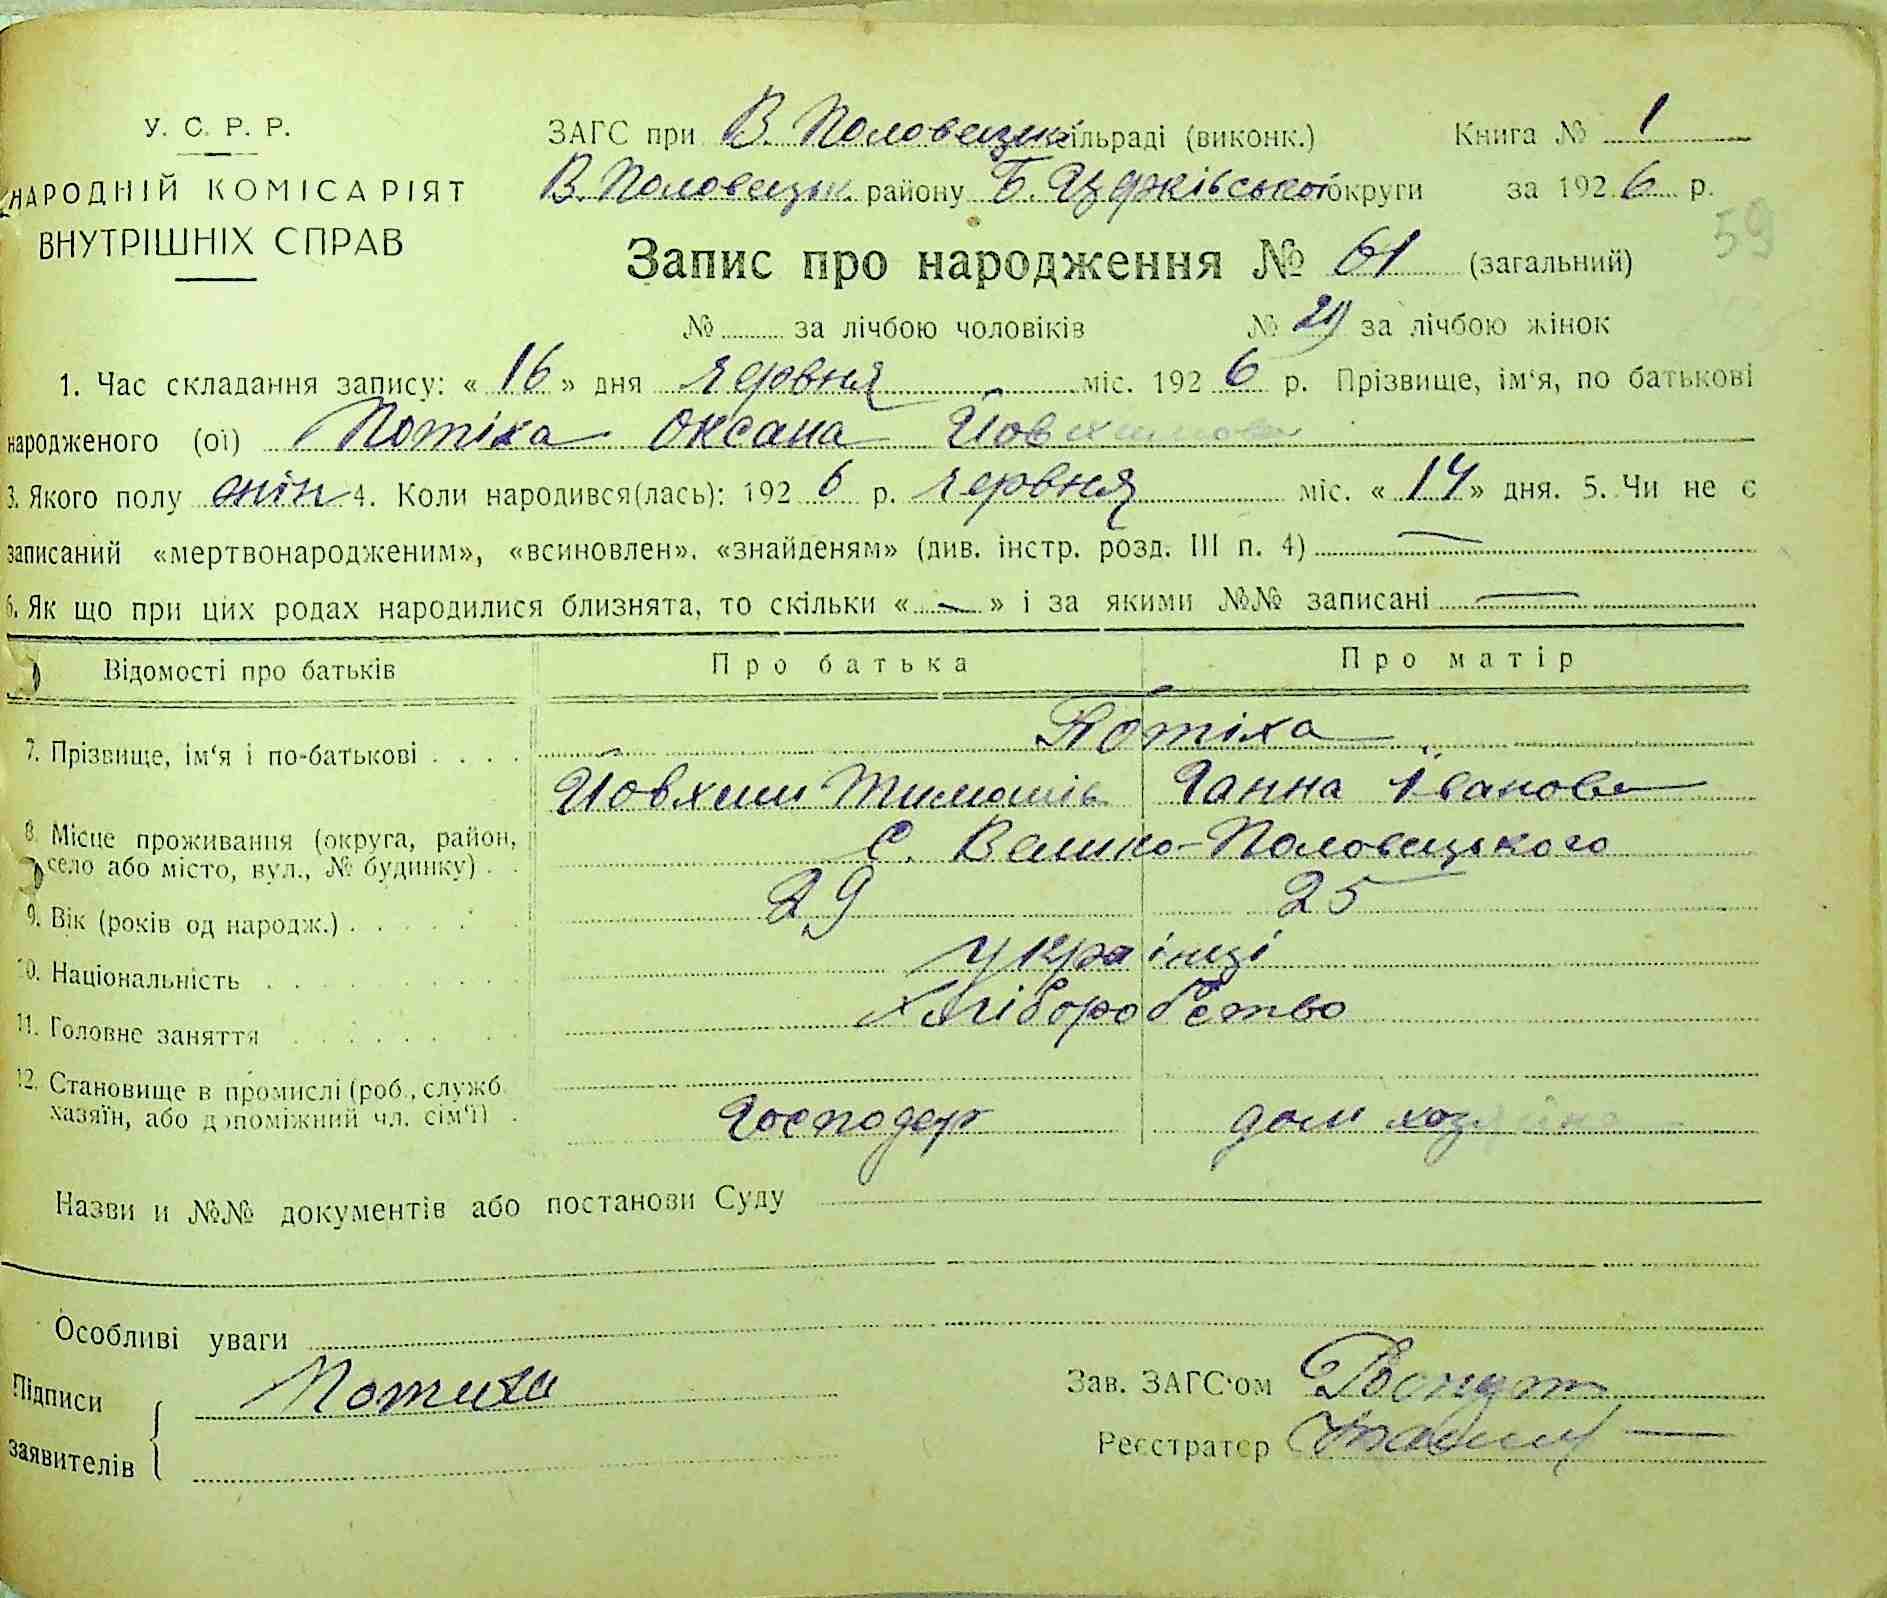 У. С. Р. Р.
НАРОДНІЙ КОМІСАРІЯТ
ВНУТРІШНІХ СПРАВ
ЗАГС при В. Половецьк. сільраді (виконк.) Книга № 1
В. Половецьк. району Б. Церківської округи за 1926 р.
59
Запис про народження № 61 (загальний)
№ за лічбою чоловіків № 29 за лічбою жінок
1. Час складання запису: « 16 » дня червня міс. 1926 р. Прізвище, ім‘я, по батькові
народженого (ої) Потіха Оксана Йовхимова
3. Якого полу жін 4. Коли народився(лась): 1926 р. червня міс. « 14 » дня. 5. Чи не є
записаний «мертвонародженим», «всиновлен», «знайденям» (див. інстр. розд. III п. 4) —
6. Як що при цих родах народилися близнята, то скільки « — » і за якими №№ записані —
Відомості про батьків Про батька Про матір
7. Прізвище, ім‘я і по-батькові . . . . Потіха
Йовхим Тимошів Ганна Іванова
8. Місце проживання (округа, район,
село або місто, вул., № будинку) . . С. Велико-Половецького
9. Вік (років од народж.) . . . . . . 29 25
10. Національність . . . . . . . . . українці
11. Головне заняття . . . . . . . . хліборобство
12. Становище в промислі (роб., служб.
хазяїн, або допоміжний чл. сім‘ї) . Господар дом хозяйка
Назви и №№ документів або постанови Суду
Особливі уваги
Підписи
заявителів
Потиха
Зав. ЗАГС‘ом
Реєстратор